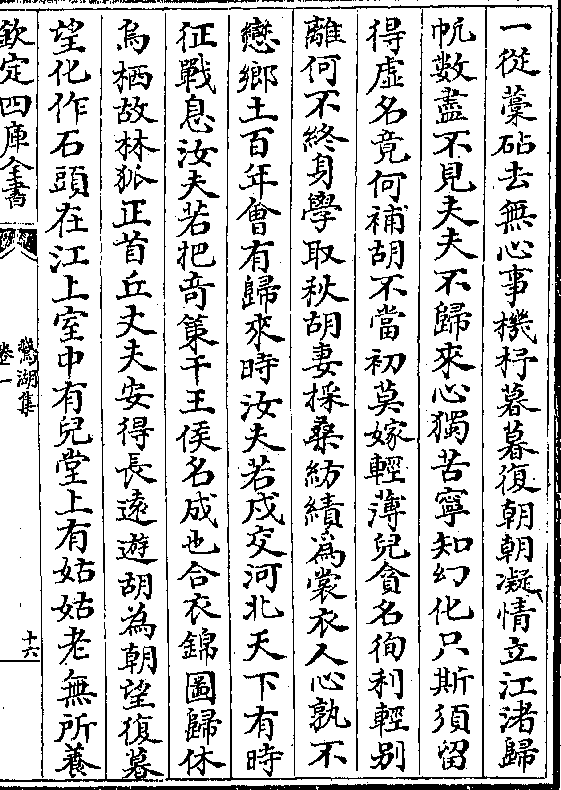 一從藁砧去無心事機杼暮暮復朝朝凝情立江渚歸
帆數盡不見夫夫不歸來心獨苦寧知幻化只斯須留
得虛名竟何補胡不當初莫嫁輕薄兒貪名徇利輕别
離何不終身學取秋胡妻採桑紡績為裳衣人心孰不
戀鄉土百年會有歸來時汝夫若戍交河北天下有時
征戰息汝夫若把竒策干王侯名成也合衣錦圖歸休
烏栖故林狐正首丘丈夫安得長遠遊胡為朝望復暮
望化作石頭在江上室中有兒堂上有姑姑老無所養
欽定四庫全書
鵞湖集
卷一
十六